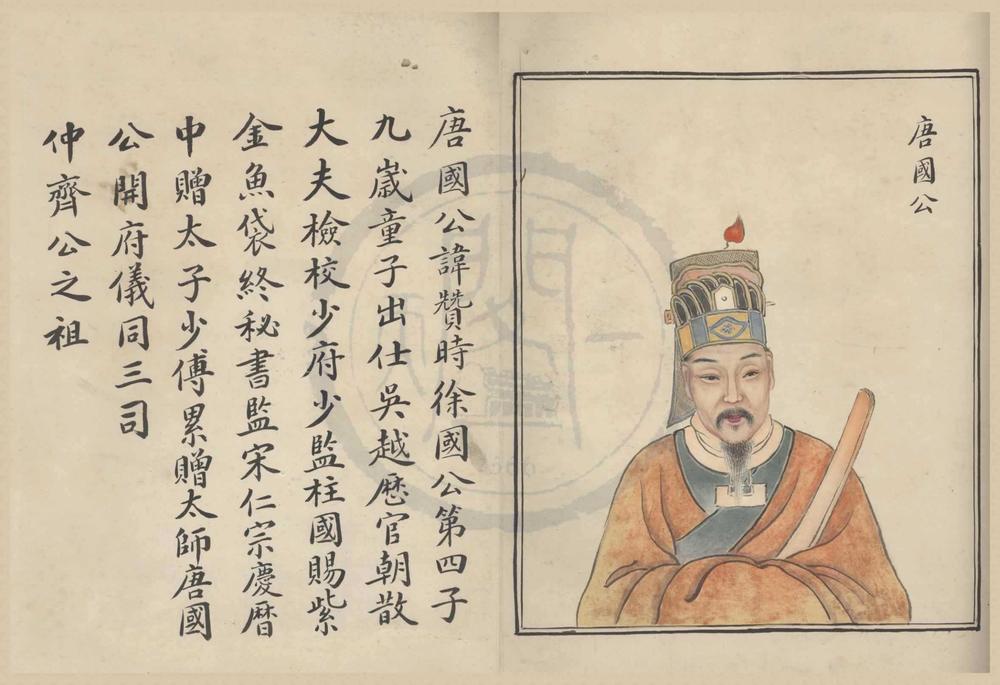 唐國公
唐國公諱贊時徐國公第四子
九歲童子出仕吳越歷官朝散
大夫檢校少府少監柱國賜紫
金魚袋終秘書監宋仁宗慶曆
中贈太子少傅累贈太師唐國
公開府儀同三司
仲齊公之祖